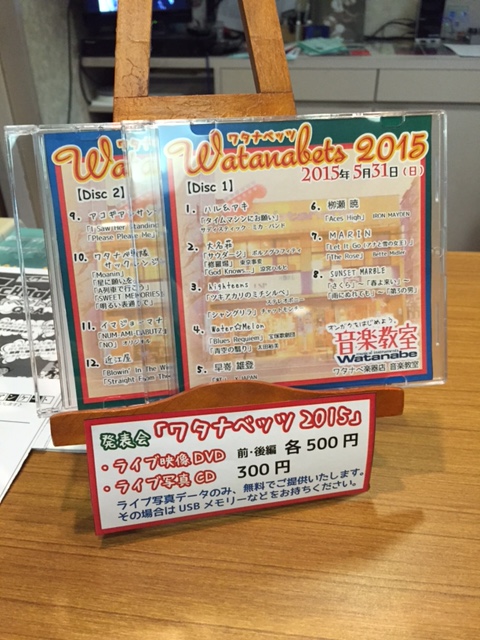 ワタナベッツ
Watanabets 2015
2015年5月31日(日)
【Disc 1】
1. ハル&アキ
「タイムマシンにお願い」
サディスティック ミカ バンド
2. 大名莊
「サウダージ」 ポルノグラフィティ
「修羅場」 東京事変
「God Knows...」 涼宮ハルヒ
3. Nighteens
「ツキアカリのミチシルベ」
ステレオポニー
「シャングリラ」 チャットモンチー
4. WaterOfMelon
「Blues Requiem」 宝塚歌劇団
「青空の翳り」 太田裕美
5. 早嵜 雄登
JAPAN
6. 柳瀬 暁
「Aces High」 IRON MAIDEN
7. MARIN
「Let It Go(アナと雪の女王)」
「The Rose」 Bette Midler
8. SUNSET MARBLE
「さくら」～「春よ来い」～
「雨にぬれても」～「第3の男」
マンガクをはじめよう。
音楽教室
Watanabe
ワタナベ楽器店 音楽教室
ワタナ
Wa
【Disc 2】
9. アコギアーサン
「I Saw Her Standing
「Please Please Me」
10. ワタナベ
「Moanin」
「星に願いを」
「A列車で行こう」
「SWEET MEMORIES
「明るい表通りで」
11. イマジョーマナ
「NUM AMI GABUTZ
「NO」
12. 近江屋
「Blowin' In The Win
「Straight From The
発表会「ワタナベッツ 2015」
・ライブ映像DVD 前・後編 各500円
・ライブ写真CD 300円
ライブ写真データのみ、無料でご提供いたします。
その場合はUSBメモリーなどをお持ちください。